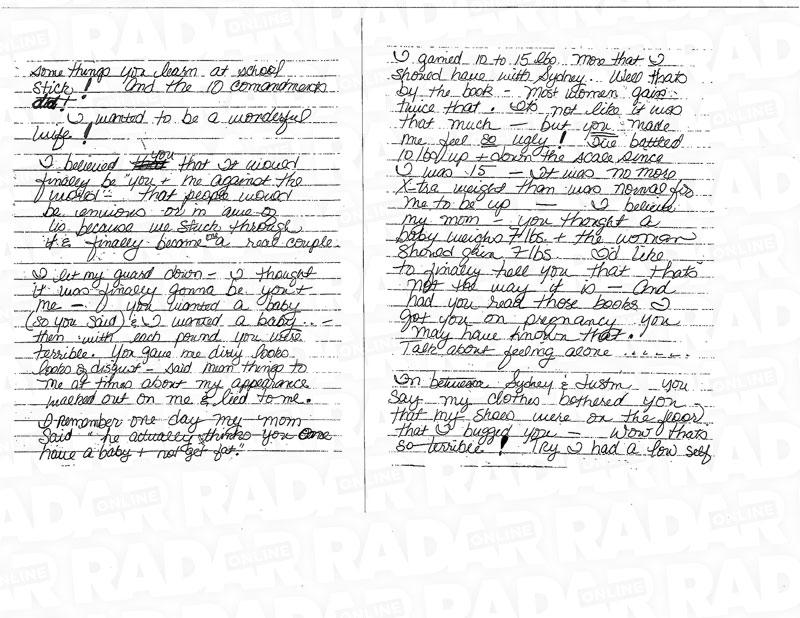 some things you learn at school
stick! And the 10 comandments
did!
I wanted to be a wonderful
wife!
I believed you that it would
finally be "you + me against the
world" - that people would
be envious or in awe of
us because we stuck through
it & finally became a real couple.
I let my guard down - I thought
it was finally gonna be you +
me - you wanted a baby
(so you said) & I wanted a baby -
then with each pound you were
terrible. You gave me dirty looks
looks of disgust - said mean things to
me at times about my appearance
walked out on me & lied to me.
I remember one day my mom
said "he actually thinks you can
have a baby + not get fat."
I gained 10 to 15 lbs more that I
should have with Sydney. Well thats
by the book - Most women gain
twice that. Its not like it was
that much - but you made
me feel so ugly! I've battled
10 lbs up + down the scale since
I was 15 - It was no more
X-tra weight than was normal for
me to be up - I believe
my mom - you thought a
baby weighs 7 lbs + the woman
should gain 7 lbs. I'd like
to finally tell you that thats
not the way it is - And
had you read those books I
got you on pregnancy you
may have known that.
Talk about feeling alone ......
In between Sydney & Justin you
say my clothes bothered you -
that my shoes were on the floor
that I bugged you - Wow thats
so terrible! Try I had a low self
RADAR ONLINE